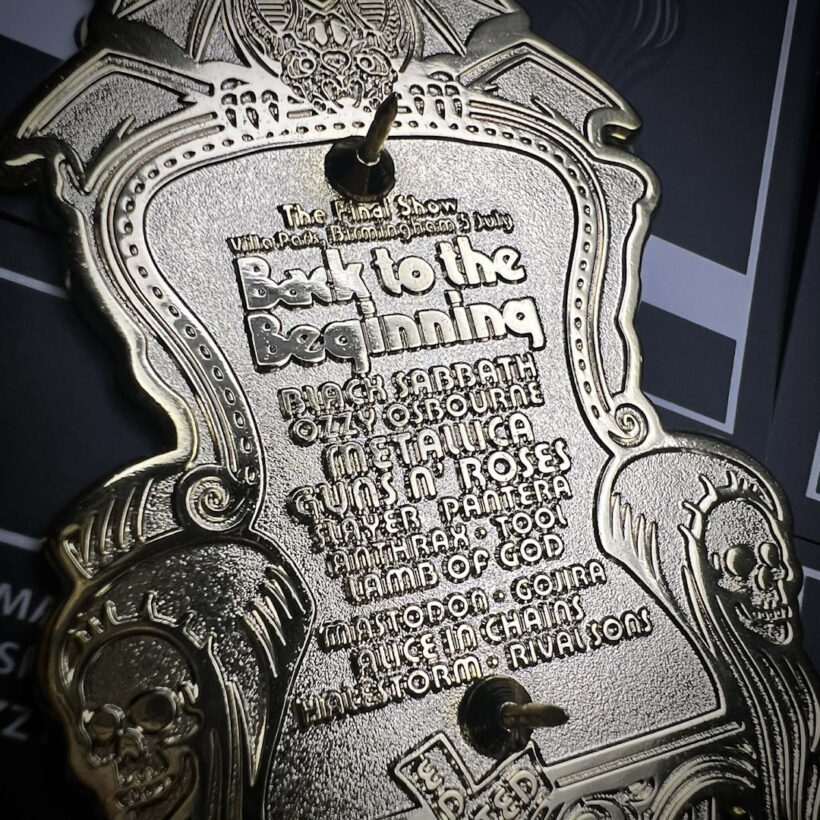 The Final Show
Villa Park, Birmingham 5 July
Back to the
Beginning
BLACK SABBATH
OZZY OSBOURNE
METALLICA
GUNS N' ROSES
SLAYER PANTERA
ANTHRAX • TOOL
LAMB OF GOD
MASTODON • GOJIRA
ALICE IN CHAINS
HALESTORM • RIVAL SONS